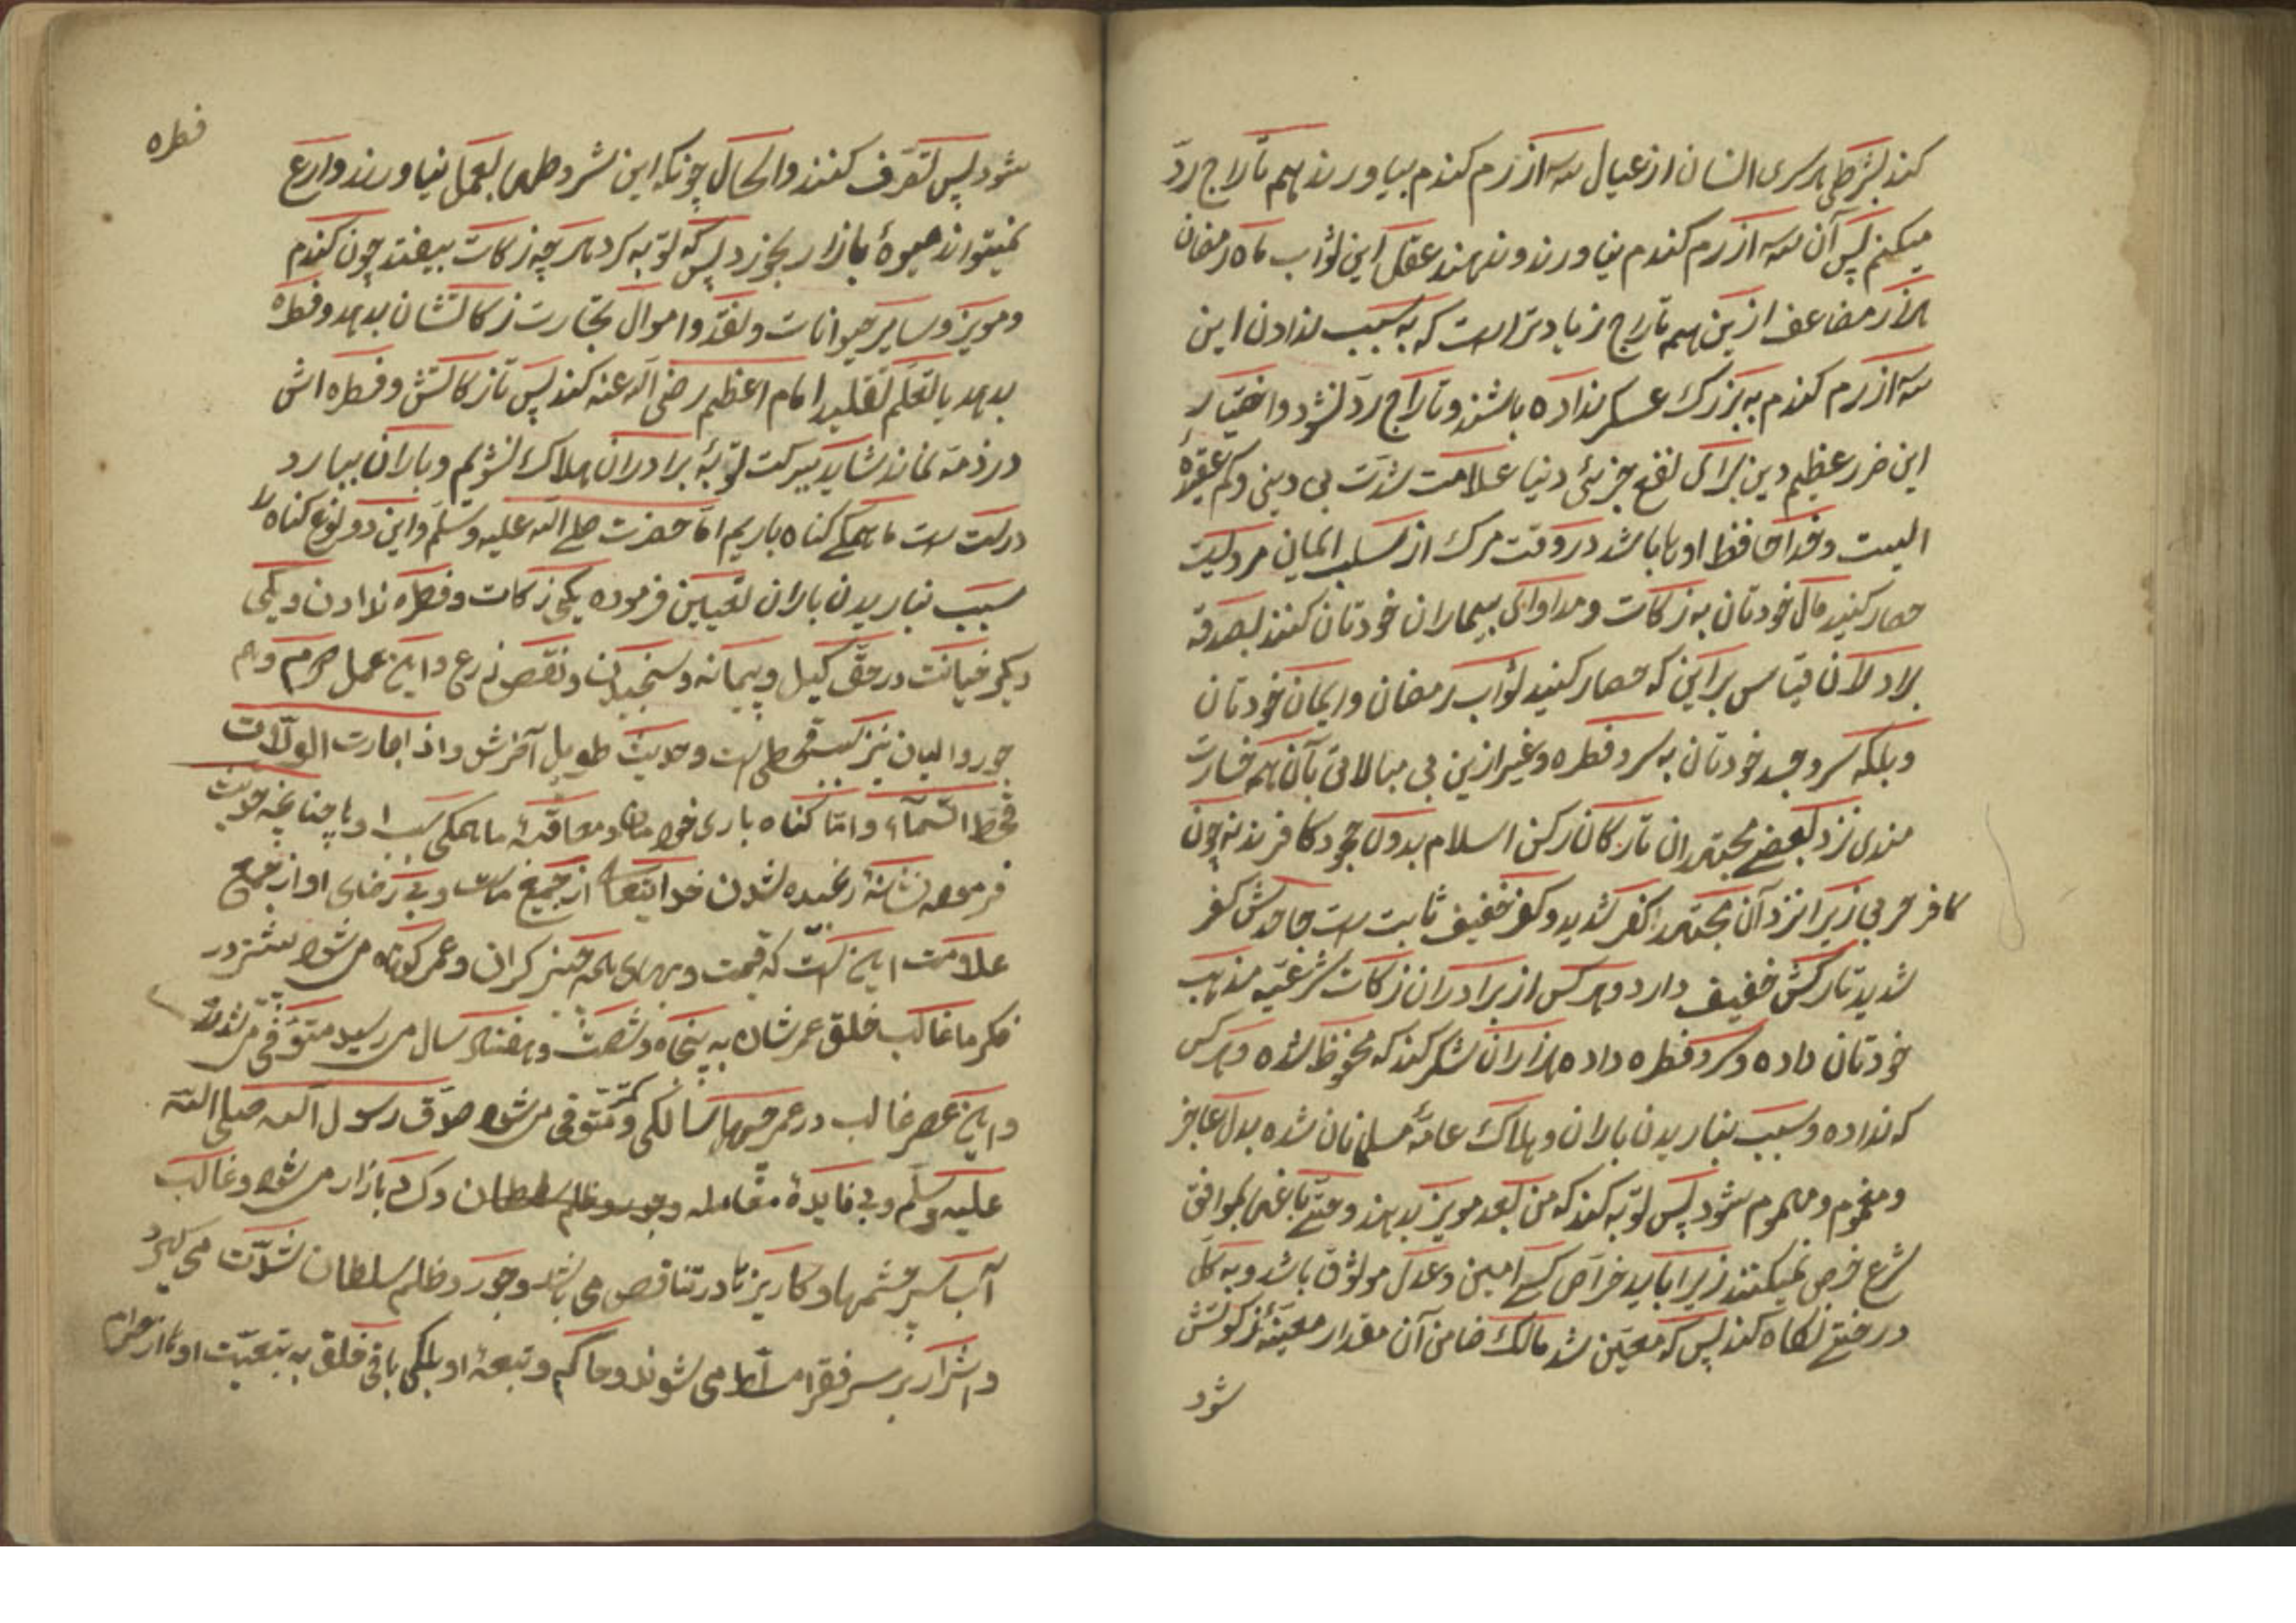 کند بشرطی هر سری انسان از عیال سه از رم کندم بیاورند بهم تاراج ردّ
میکنم پس آن سه از رم کندم نیاورند و ندهند عقل این ثواب ماه رمضان
هزار مضاعف ازین بهم تاراج زیادتر است که به سبب ندادن این
سه از رم کندم به بزرک عسکر نداده باشند و تاراج ردّ نشود و اختیار
این ضرر عظیم دین برای نفع جزئی دنیا علامت شدّت بی دینی و کم عقیدۀ
الیست و خدا حافظ اوها باشد در وقت مرک از سلب ایمان مرویست
حصار کنید مال خودتان به زکات و مداوای بیماران خودتان کنند بصدقه
بلا دلان قیاس بر این که حصار کنید ثواب رمضان و ایمان خودتان
و بلکه سر و جسد خودتان به سر و فطره و غیر ازین بی مبالاتی بآن همه خسارت
مندی نزد بعضی مجتهدان تارکان رکن اسلام بدون جحود کافرند نه چون
کافر حربی زیرا نزد آن مجتهد کفر شدید و کفر خفیف ثابت ست جاحدش کفر
شدید تارکش خفیف دارد و هر کس از برادران زکات شرعیّه مذهب
خودتان داده و سر و فطره داده هزاران شکر کند که محفوظ شده و هر کس
که نداده و سبب نباریدن باران و هلاک عامۀ مسلمانان شده بدل عاجز
و مغموم و مهموم شود پس توبه کند که من بعد مویز بدهند و حتی باغها بموافق
شرع خرص نمیکنند زیرا باید خرّاص کسی امین و عدل موثوق باشد و به کل
درختی نکاه کند پس که معیّن شد مالک ضامن آن مقدار معینۀ زکوتش
شود
فطره
شود پس تصرّف کنند و الحال چونکه این شروطها بعمل نیاورند وارع
نمیتواند میوۀ بازار بخورد پس که توبه کرد هر چه زکات بیفتد چون کندم
و مویز و سایر حیوانات و نقد و اموال تجارت زکاتشان بدهد و فطره
بدهد یا تعلّم تقلید امام اعظم رضی الله عنه کند پس تا زکاتش و فطره اش
در ذمّه نماند شاید ببرکت توبۀ برادران هلاک نشویم و باران ببارد
درست ست ما همکی کناه باریم امّا حضرت صلی الله علیه و سلّم و این دو نوع کناه را
سبب نباریدن باران تعیین فرموده یکی زکات و فطره ندادن و یکی
دیکر خیانت در حقّ کیل و پیمانه و سنجیدن و نقص ذرع و این عمل حرام و هم
جور والیان نیز سبب قحطی است و حدیث طویل آخرش و اذا جارت الولّات
قحط السّمآء و امّا کناه باری خواصان و معاقبۀ ما همکی سبب اوها چنانچه حدیث
فرموده نشانۀ رنجیده شدن خدایتعالی از جمیع ماست و بی رضای او از جمیع
علامت این است که قیمت و بهای همه چیز کران و عمر کوتاه می شود بیشتر در
فکر ما غالب خلق عمرشان به پنجاه و شصت و هفتاد سال می رسید متوفّی می شدند
و این عصر غالب در عمر چهل سالکی و کمتر متوفی می شود صدق رسول الله صلی الله
علیه و سلّم و بی فایدۀ معامله و جور و ظلم سلطان و کساد بازار می شود و غالب
آب سر چشمها و کاریزها در تناقص می باشد و جور و ظلم سلطان شدّت می کیرد
و اشرار بر سر فقرا مسلّط می شوند و حاکم و تبعۀ او بلکی باقی خلق به تبعیّت اوها